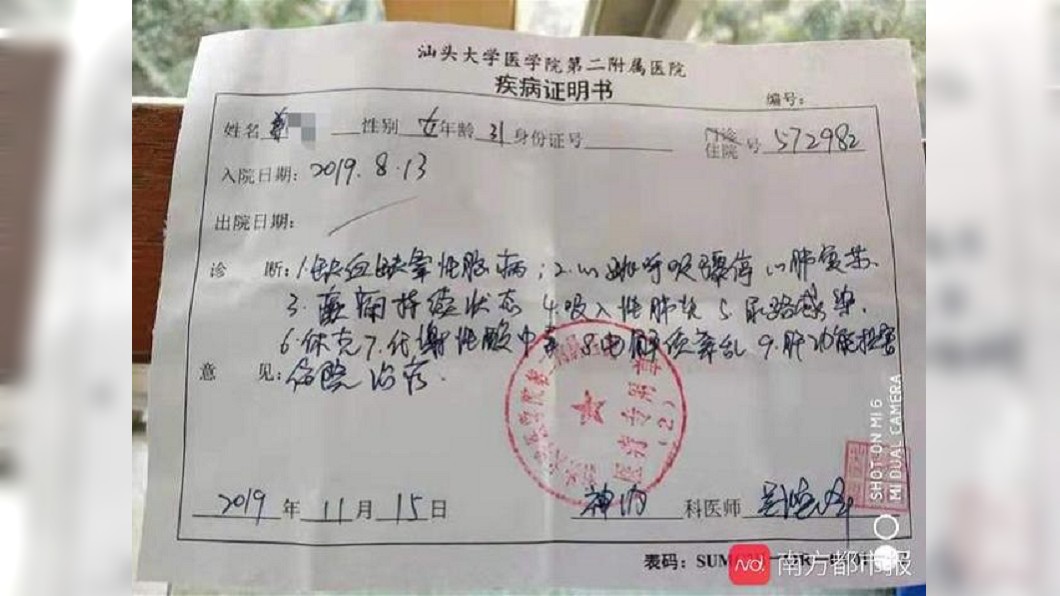 汕头大学医学院第二附属医院
疾病证明书
编号:
姓名 蔡 性别 女 年龄 31 身份证号 门诊 住院 号 572982
入院日期: 2019.8.13
出院日期:
诊 断: 1.缺血缺氧性脑病; 2.心跳呼吸骤停 心肺复苏.
3.癫痫持续状态 4.吸入性肺炎 5.尿路感染.
6.休克 7.代谢性酸中毒 8.电解质紊乱 9.肝功能损害
意 见: 住院治疗.
医疗专用章
(2)
2019 年 11 月 15 日 神内 科医师
表码: SUM
SHOT ON MI 6
MI DUAL CAMERA
nd. 南方都市报